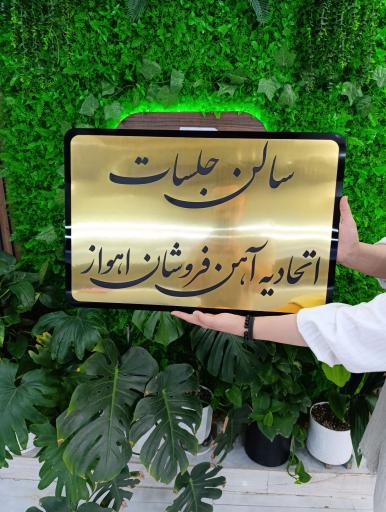 سالن جلسات
اتحادیه آهن فروشان اهواز